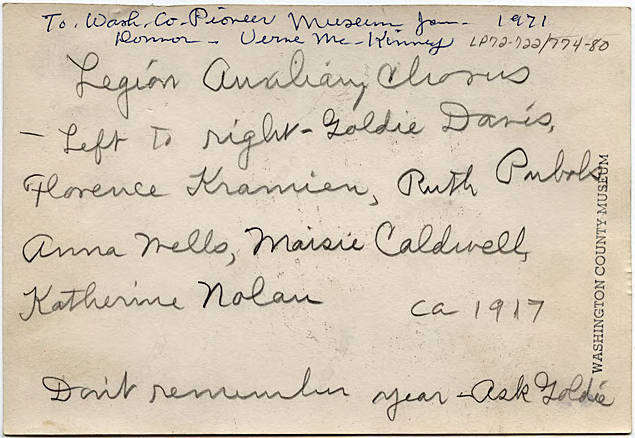 To. Wash. Co. Pioneer Museum Jan- 1971
Donnor - Verne Mc-Kinney LP72-722/774-80
Legion Auxliary Chorus
- Left to right - Goldie Davis,
Florence Kramien, Ruth Pubols
Anna Wells, Maisie Caldwell,
Katherine Nolan ca 1917
Don't remember year - Ask Goldie
WASHINGTON COUNTY MUSEUM